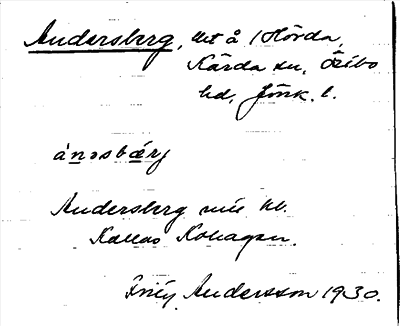 Andersberg, bet å /Hörda,
Kärda sn, Östbo
hd, Jönk. l.
ánəsbærj
Andersberg
Kallas Kohagen.
Andersson 1930.